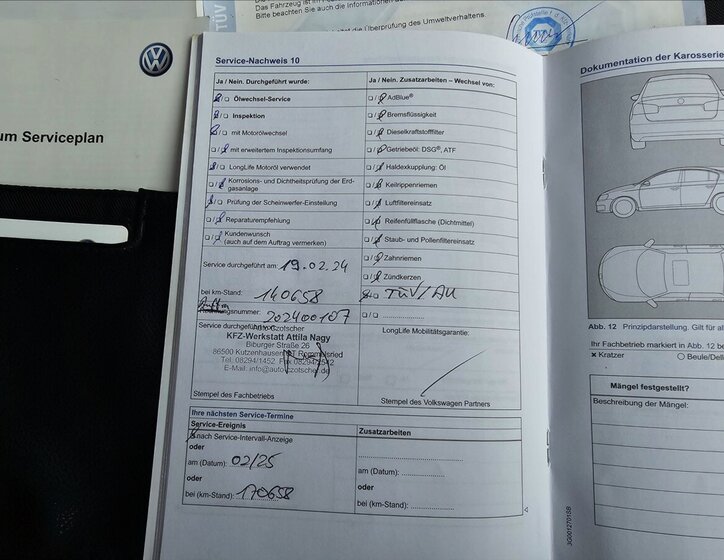 TÜV
Das Fahrzeug ist im
Bitte beachten Sie auch die Informationen
Überprüfung des Umweltverhaltens.
um Serviceplan
Service-Nachweis 10
Ja / Nein. Durchgeführt wurde:
Ölwechsel-Service
Inspektion
mit Motorölwechsel
mit erweitertem Inspektionsumfang
LongLife Motoröl verwendet
Korrosions- und Dichtheitsprüfung der Erd-
gasanlage
Prüfung der Scheinwerfer-Einstellung
Reparaturempfehlung
Kundenwunsch
(auch auf dem Auftrag vermerken)
Service durchgeführt am: 19.02.24
bei km-Stand: 140658
nummer: 202400107
Service durchgeführt
KFZ-Werkstatt Attila Nagy
Biburger Straße 26
86500 Kutzenhausen
Tel. 08294/1452
E-Mail: info@auto-czotscher.de
Stempel des Fachbetriebs
Ja / Nein. Zusatzarbeiten – Wechsel von:
AdBlue®
Bremsflüssigkeit
Dieselkraftstofffilter
Getriebeöl: DSG®, ATF
Haldexkupplung: Öl
Keilrippenriemen
Luftfiltereinsatz
Reifenfüllflasche (Dichtmittel)
Staub- und Pollenfiltereinsatz
Zahnriemen
Zündkerzen
TÜV/AU
LongLife Mobilitätsgarantie:
Stempel des Volkswagen Partners
Ihre nächsten Service-Termine
Service-Ereignis
nach Service-Intervall-Anzeige
oder
am (Datum): 02/25
oder
bei (km-Stand): 170658
Zusatzarbeiten
am (Datum):
oder
bei (km-Stand):
3G0012701SB
Dokumentation der Karosserie
Abb. 12 Prinzipdarstellung. Gilt für a
Ihr Fachbetrieb markiert in Abb. 12 be
x Kratzer
Beule/Dell
Mängel festgestellt?
Beschreibung der Mängel: